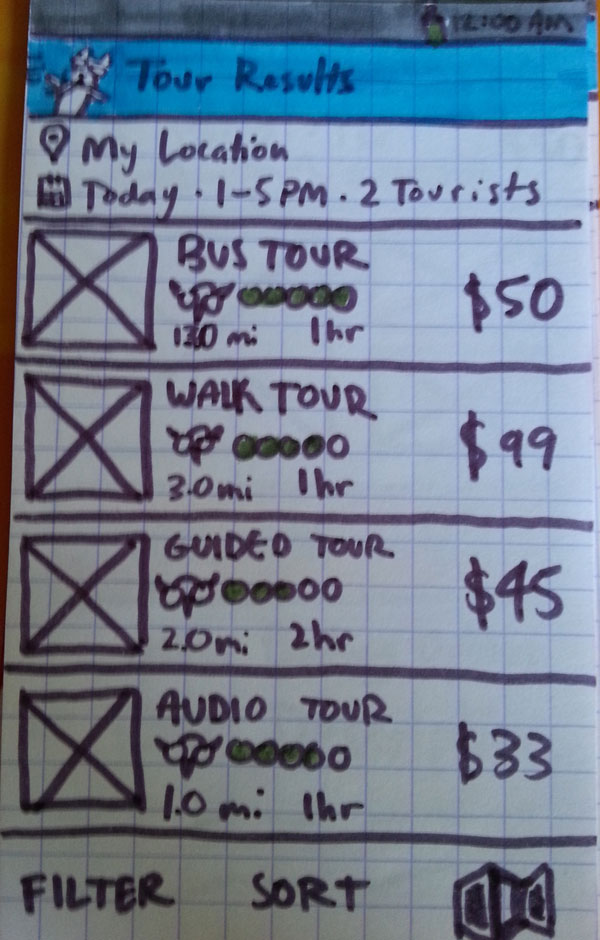 12:00 AM
Tour Results
My Location
Today · 1-5PM · 2 Tourists
BUS TOUR
$50
1 hr
WALK TOUR
$99
3.0 mi 1 hr
GUIDED TOUR
$45
2.0 mi 2 hr
AUDIO TOUR
$33
1.0 mi 1 hr
FILTER SORT